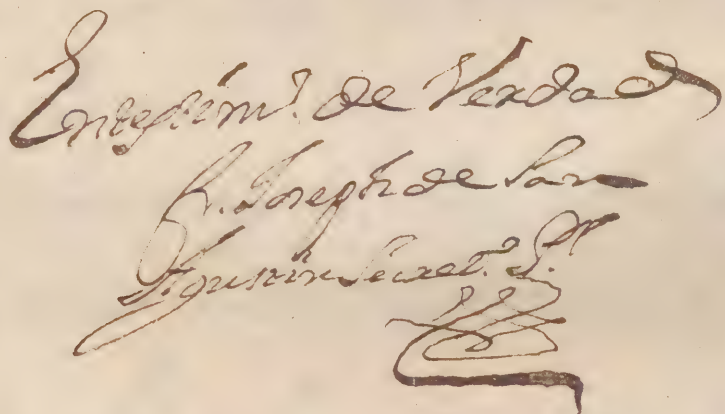 En testim.º de Verdad
fr. Joseph de San
Agustin Secret.º P.ª